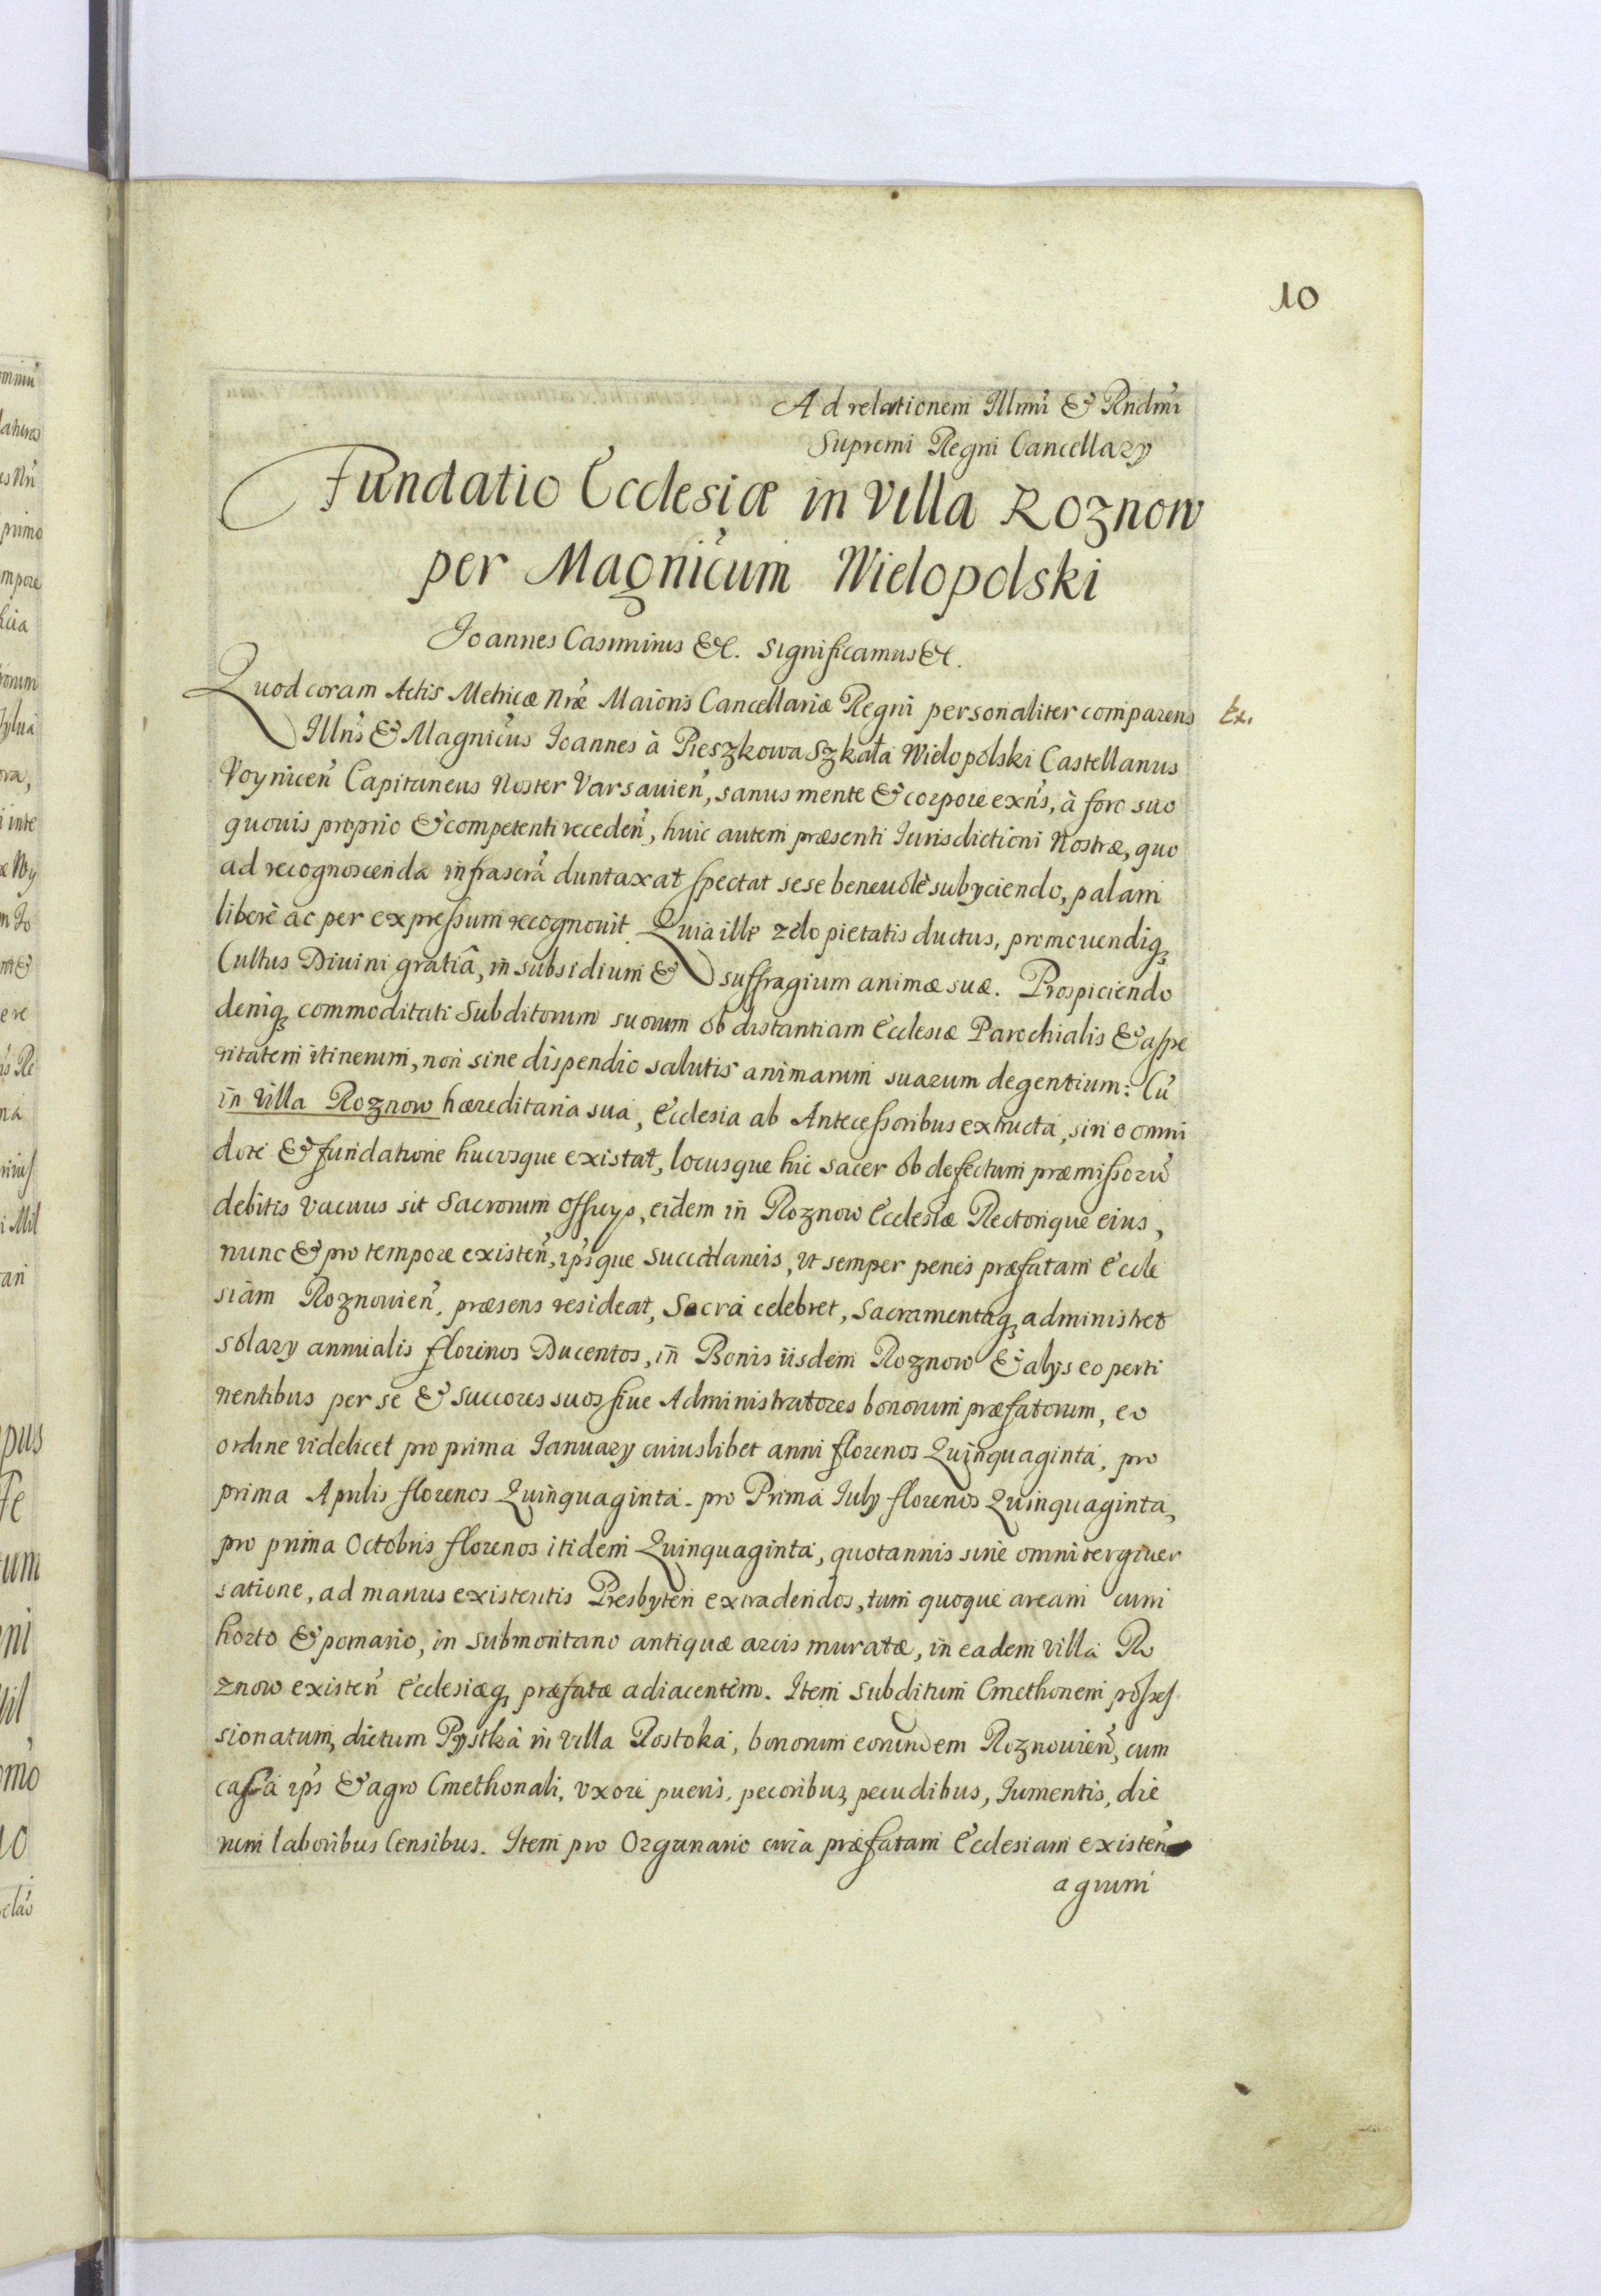 10
Ad relationem Illmi & Rndmi
Supremi Regni Cancellary
Fundatio Ecclesiæ in Villa Roznow
per Magnicum Wielopolski
Joannes Casimirus &c. Significamus &c.
Quod coram Actis Metricæ Nræ Maioris Cancellariæ Regni personaliter comparens
Ex.
Illris & Magnicus Joannes à Pieszkowa Szkała Wielopolski Castellanus
Voynicen̄ Capitaneus Noster Varsauien̄, sanus mente & corpore exns, à foro suo
quouis proprio & competenti receden̄, huic autem præsenti Jurisdictioni Nostræ, quo
ad recognoscenda infrascra duntaxat spectat sese beneuolè subyciendo, palam
liberè ac per expressum recognouit. Quia ille zelo pietatis ductus, promouendiq,
Cultus Diuini gratiâ, in subsidium & suffragium animæ suæ. Prospiciendo
deniq, commoditati Subditorum suorum ob distantiam Ecclesiæ Parochialis & aspe
ritatem itinerum, non sine dispendio salutis animarum suarum degentium: Cū
in villa Roznow hæreditaria sua, Ecclesia ab Antecessoribus extructa, sine omni
dote & fundatione hucusque existat, locusque hic sacer ob defectum præmissorū
debitis vacuus sit Sacrorum officys, eidem in Roznow Ecclesiæ Rectorique eius,
nunc & pro tempore existen̄, ipsque succedaneis, vt semper penes præfatam Eccle
siam Roznouien̄. præsens resideat, Sacra celebret, sacramentaq, administret
solary annualis florenos Ducentos, in Bonis iisdem Roznow & alys eo perti
nentibus per se & succores suos siue Administratores bonorum præfatorum, eo
ordine videlicet pro prima January cuiuslibet anni florenos Quinquaginta, pro
prima Aprilis florenos Quinquaginta. pro Prima July florenos Quinquaginta,
pro prima Octobris florenos itidem Quinquaginta, quotannis sine omni tergiuer
satione, ad manus existentis Presbyteri extradendos, tum quoque aream cum
horto & pomario, in submontano antiquæ arcis muratæ, in eadem villa Ro
znow existen̄ Ecclesiæq, præfatæ adiacentem. Item subditum Cmethonem posses
sionatum, dictum Pystka in villa Rostoka, bonorum eorundem Roznouien̄, cum
casa ips & agro Cmethonali, vxore pueris, pecoribus, pecudibus, Jumentis, die
rum laboribus Censibus. Item pro Organario circa præfatam Ecclesiam existen̄
agrum